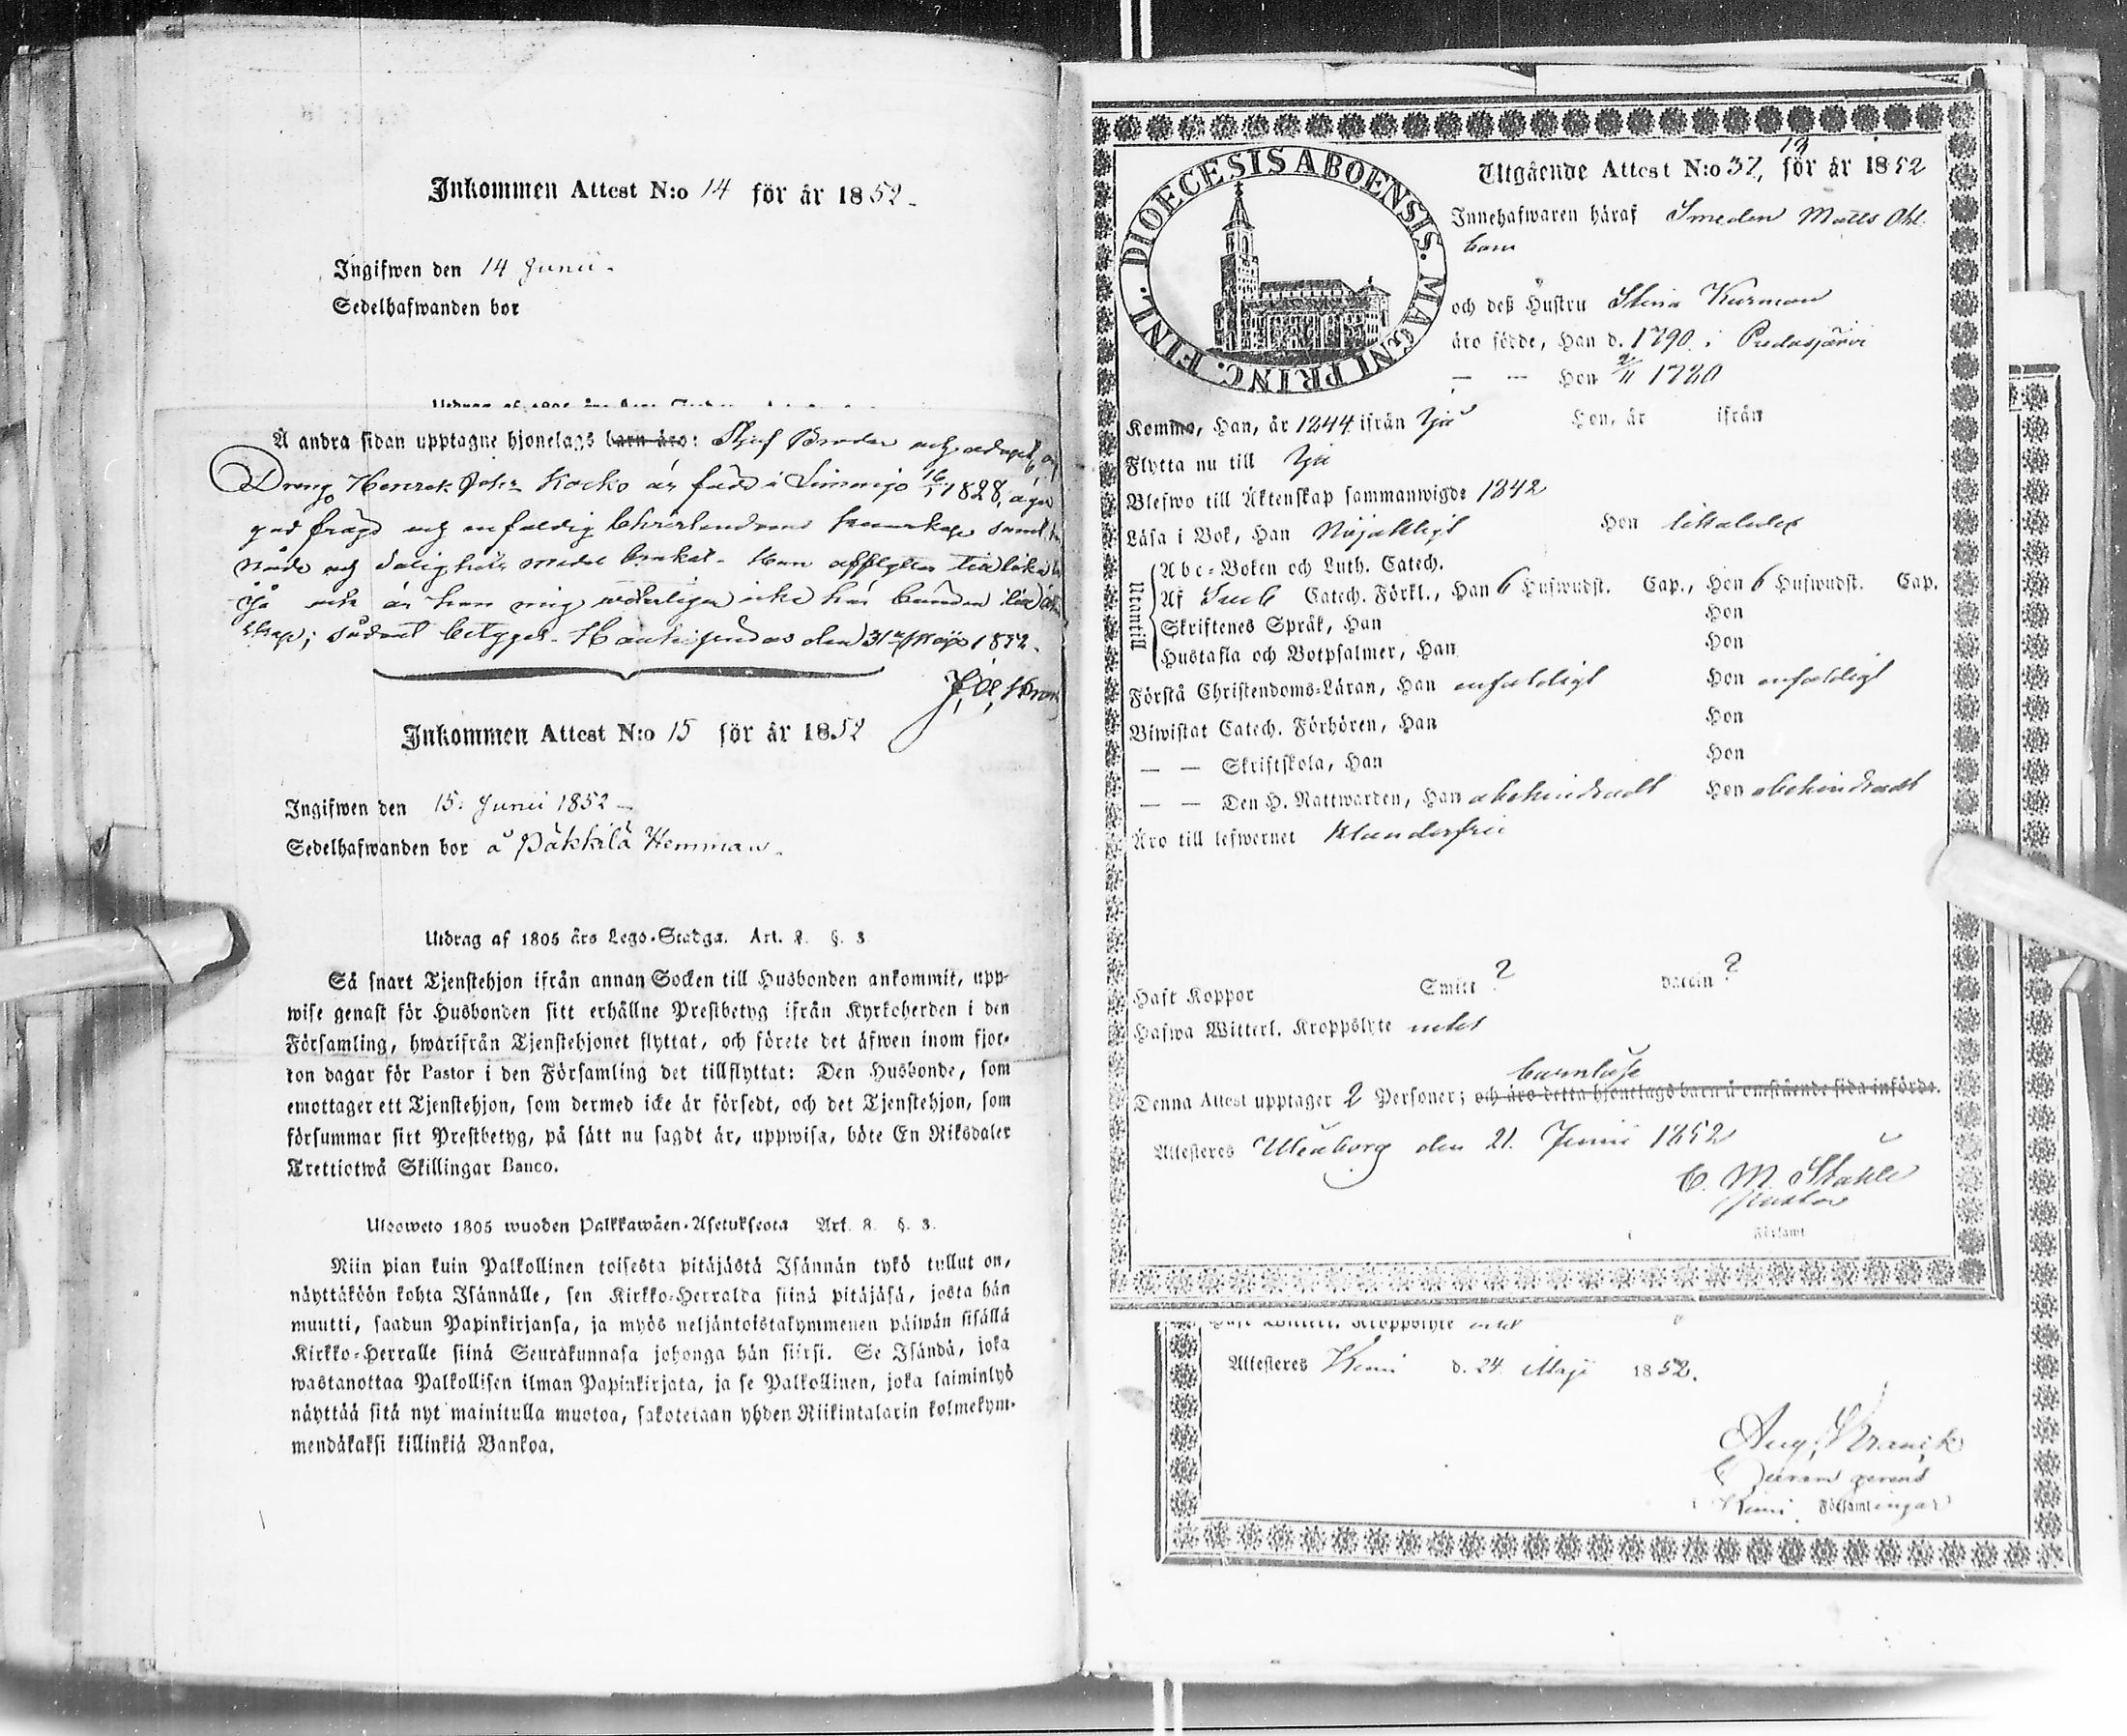 Inkommen Attest N:o 14 för år 1852.
Ingifwen den 14 Junii.
Sedelhafwanden bor
Å andra sidan upptagne hjonelags barn äro:
Dreng Henrik Joh: Kocko är född i Limmijo 16/1 1828, äger
god frägd och enfaldig Christendoms kunskap samt
nåde och salighets medel brukat. Han afflyttar
Ijo och är han mig veterligen icke här bunden
skap; sådant betygas. den 31 Maji 1852.
Inkommen Attest N:o 15 för år 1852
Ingifwen den 15. Junii 1852
Sedelhafwanden bor å Päkkilä Hemman.
Utdrag af 1805 års Lego-Stadga. Art. 8. §. 3
Så snart Tjenstehjon ifrån annan Socken till Husbonden ankommit, upp-
wise genast för Husbonden sitt erhållne Prestbetyg ifrån Kyrkoherden i den
Församling, hwarifrån Tjenstehjonet flyttat, och förete det äfwen inom fjor-
ton dagar för Pastor i den Församling det tillflyttat: Den Husbonde, som
emottager ett Tjenstehjon, som dermed icke är försedt, och det Tjenstehjon, som
försummar sitt Prestbetyg, på sätt nu sagdt är, uppwisa, böte En Riksdaler
Trettiotwå Skillingar Banco.
Ulosweto 1805 wuoden Palkkawäen-Asetuksesta Art. 8. §. 3.
Niin pian kuin Palkollinen toisesta pitäjästä Isännän tykö tullut on,
näyttäköön kohta Isännälle, sen Kirkko-Herralda siinä pitäjäsä, josta hän
muutti, saadun Papinkirjansa, ja myös neljäntoistakymmenen päiwän sisällä
Kirkko-Herralle siinä Seurakunnasa johonga hän siirsi. Se Isändä, joka
wastanottaa Palkollisen ilman Papinkirjata, ja se Palkollinen, joka laiminlyö
näyttää sitä nyt mainitulla muotoa, sakotetaan yhden Riikintalarin kolmekym-
mendäkaksi killinkiä Bankoa.
DIOECESIS ABOENSIS. MAGNI PRINC. FINL.
Utgående Attest N:o 37, för år 1852
Innehafwaren häraf Smeden Matts Ohl
och deß Hustru Stina Kurman
äro födde, Han d. 1790. i Pudasjärvi
— — Hon 2/11 1780
Komne, Han, år 1844 ifrån Ijo Hon, år ifrån
Flytta nu till Ijo
Blefwo till Äktenskap sammanwigde 1842
Läsa i Bok, Han Nöjaktligt Hon likaledes
Utantill
Abc-Boken och Luth. Catech.
Af Catech. Förkl., Han 6 Hufwudst. Cap., Hon 6 Hufwudst. Cap.
Skriftenes Språk, Han Hon
Hustafla och Botpsalmer, Han Hon
Förstå Christendoms-Läran, Han enfaldigt Hon enfaldigt
Biwistat Catech. Förhören, Han Hon
— — Skriftskola, Han Hon
— — Den H. Nattwarden, Han obehindradt Hon obehindradt
Äro till lefwernet klanderfrie
Haft Koppor Smitt ? vaccin ?
Hafwa Witterl. Kroppslyte intet
barnlöse
Denna Attest upptager 2 Personer; och äro detta hjonelags barn å omstående sida införde.
Attesteres Uleåborg den 21. Junii 1852
C. M. Ståhle
Pastor
i Församl
Attesteres Kemi d. 24 Maji 1852.
Kemi Församlingar